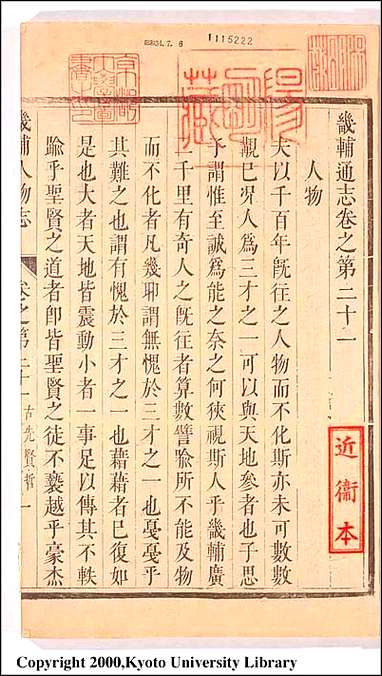 昭和34.7.6
1115222
畿輔通志卷之第二十一
人物
夫以千百年旣往之人物而不化斯亦未可數數
覯巳况人爲三才之一可以與天地參者也子思
子謂惟至誠爲能之奈之何狹視斯人乎畿輔廣
二千里有奇人之旣往者算數譬喩所不能及物
而不化者凡幾聊謂無愧於三才之一也戞戞乎
其難之也謂有愧於三才之一也藉藉者巳復如
是也大者天地皆震動小者一事足以傳其不軼
踰乎聖賢之道者卽皆聖賢之徒不褻越乎豪杰
畿輔人物志
卷之第二十一
古先賢哲
一
近衞本
Copyright 2000,Kyoto University Library